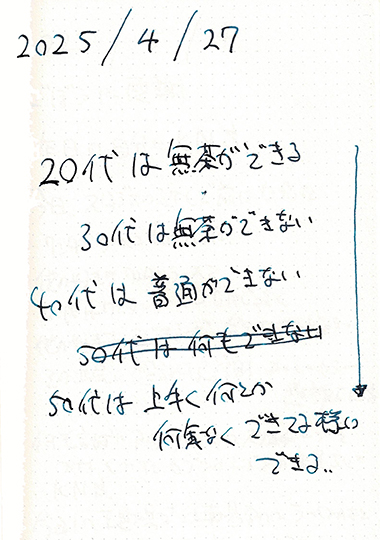 2025/4/27
20代は無茶ができる
30代は無茶ができない
40代は普通ができない
50代は何もできない
50代は上手く何とか
何気なくできてる様に
できる..